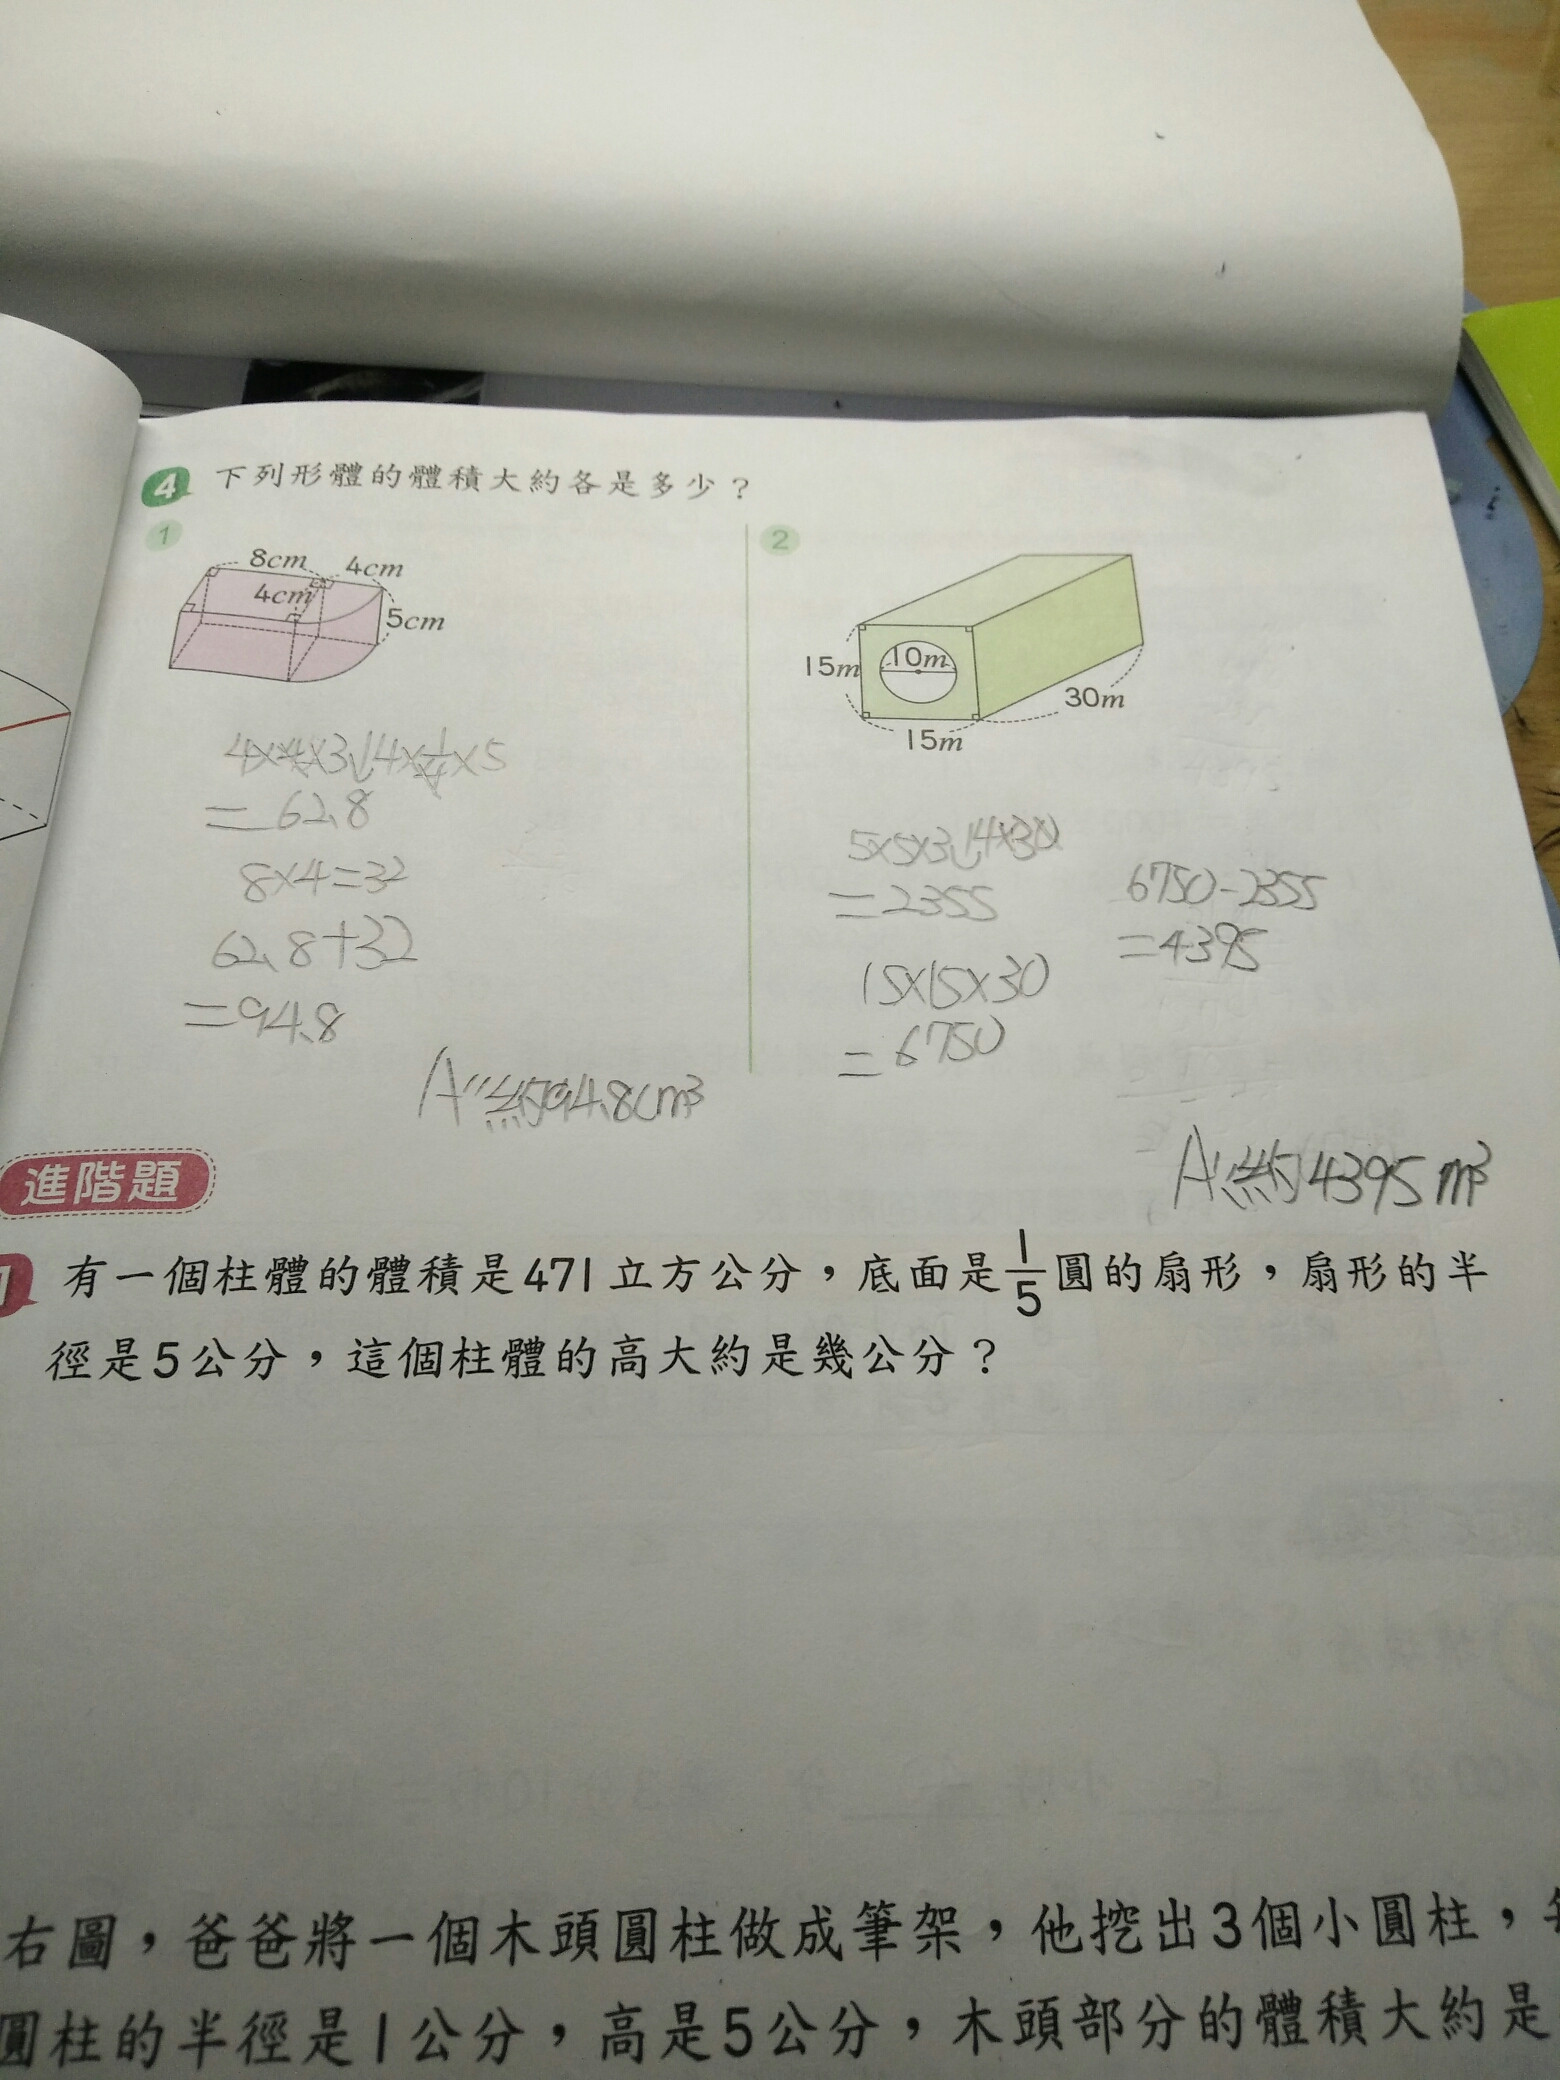 4 下列形體的體積大約各是多少？
1
8cm
4cm
4cm
5cm
4×4×3.14×1/4×5
=62.8
8×4=32
62.8+32
=94.8
A:約94.8cm³
2
10m
15m
30m
15m
5×5×3.14×30
=2355
15×15×30
=6750
6750-2355
=4395
A:約4395m³
進階題
1 有一個柱體的體積是471立方公分，底面是1/5圓的扇形，扇形的半
徑是5公分，這個柱體的高大約是幾公分？
右圖，爸爸將一個木頭圓柱做成筆架，他挖出3個小圓柱，
圓柱的半徑是1公分，高是5公分，木頭部分的體積大約是